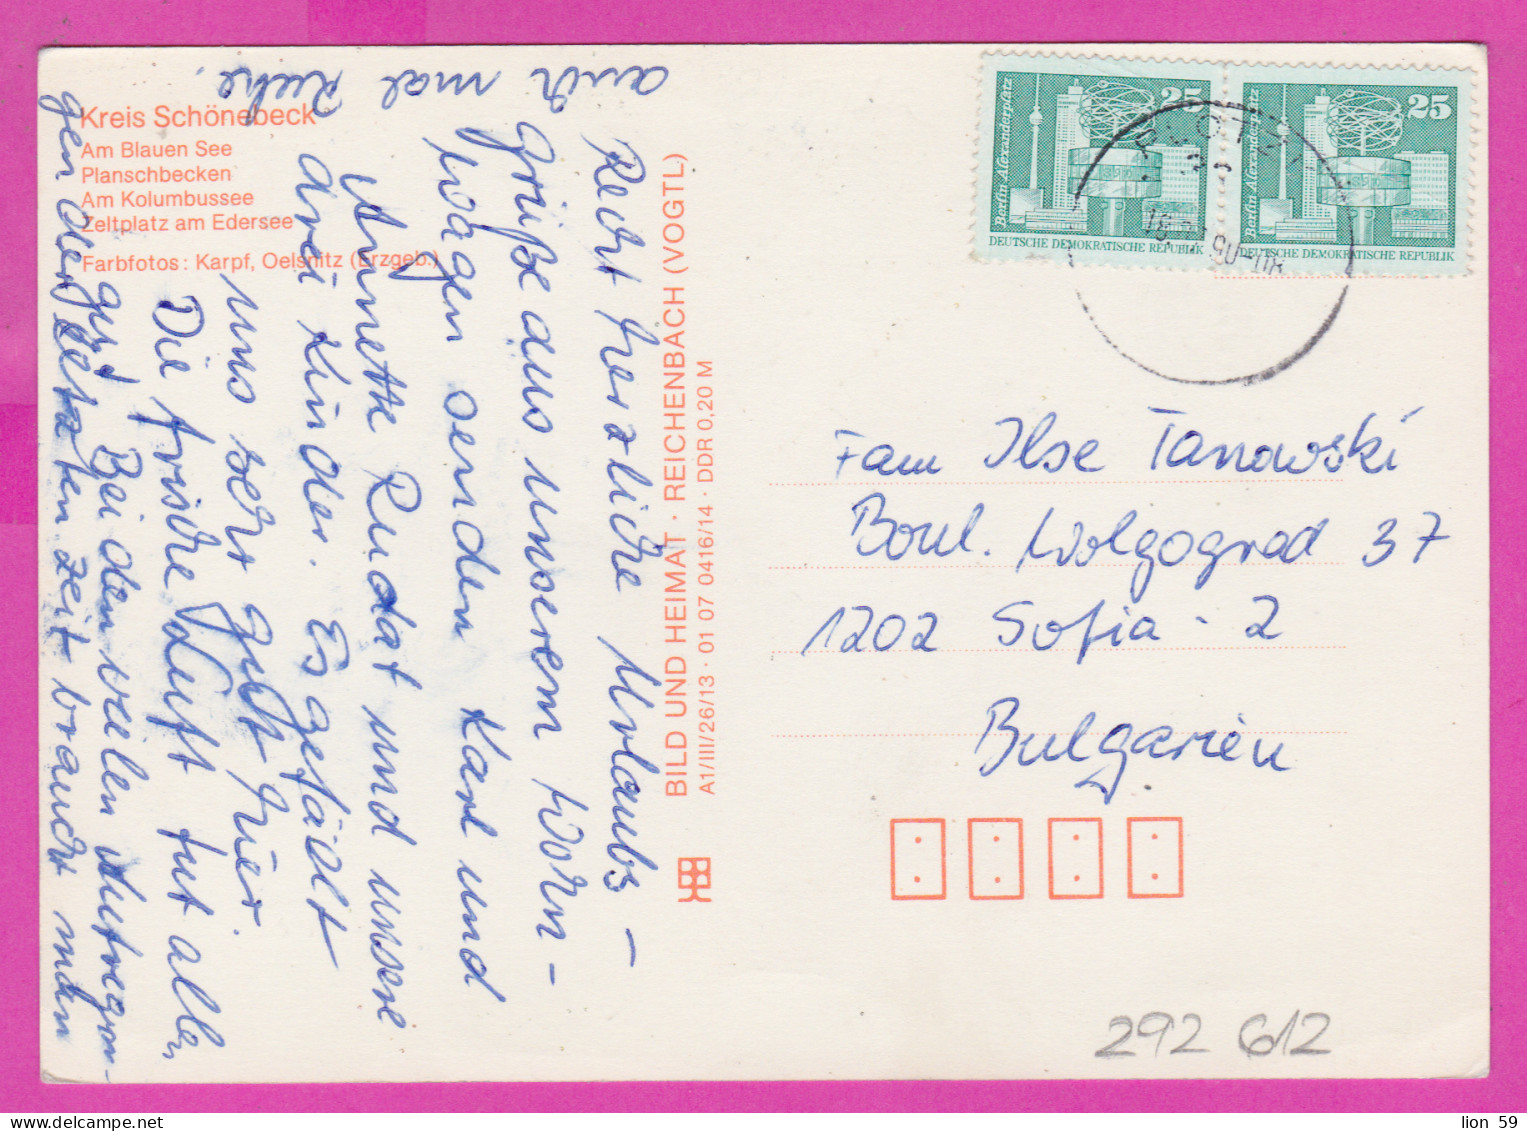 Kreis Schönebeck
Am Blauen See
Planschbecken
Am Kolumbussee
Zeltplatz am Edersee
Farbfotos: Karpf, Oelsnitz (Erzgeb.)
Recht herzliche Urlaubs-
grüße aus unserem Wohn-
wagen senden Karl und
Annette Rudat und unsere
drei Kinder. Es gefällt
uns sehr gut hier.
Die frische Luft tut allen
gut. Bei den vielen Aufregun-
gen der letzten Zeit braucht man
auch mal Ruhe.
BILD UND HEIMAT · REICHENBACH (VOGTL)
A1/III/26/13 · 01 07 0416/14 · DDR 0,20 M
25
Berlin-Alexanderplatz
DEUTSCHE DEMOKRATISCHE REPUBLIK
25
Berlin-Alexanderplatz
DEUTSCHE DEMOKRATISCHE REPUBLIK
Fam Ilse Tanowski
Boul. Wolgograd 37
1202 Sofia - 2
Bulgarien
292 612
lion 59